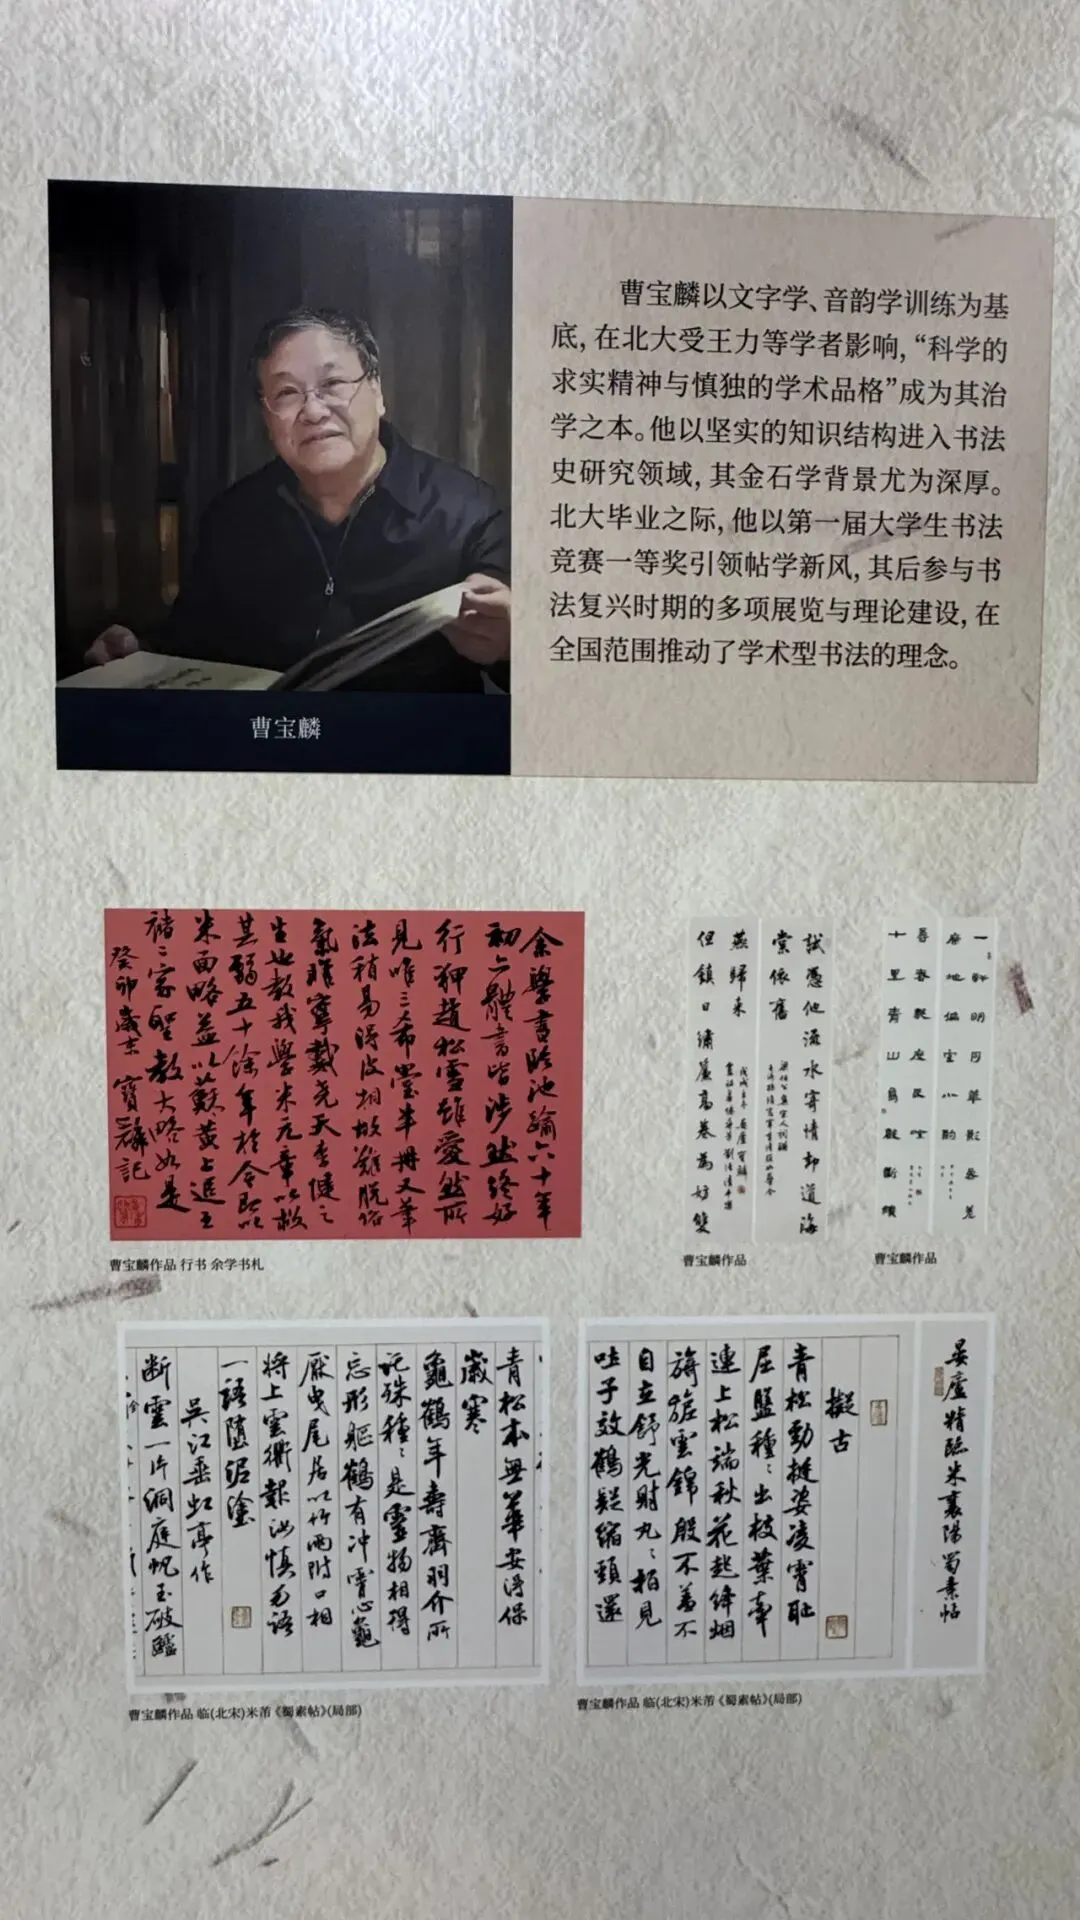 曹宝麟以文字学、音韵学训练为基
底，在北大受王力等学者影响，“科学的
求实精神与慎独的学术品格”成为其治
学之本。他以坚实的知识结构进入书法
史研究领域，其金石学背景尤为深厚。
北大毕业之际，他以第一届大学生书法
竞赛一等奖引领帖学新风，其后参与书
法复兴时期的多项展览与理论建设，在
全国范围推动了学术型书法的理念。
曹宝麟
余學書臨池踰六十年
初六體書皆涉然終好
行狎趙松雪雖愛然所
見唯三希堂半冊又筆
法稍易得皮相故難脫俗
氣
生也教我學米元章以救
其弱五十餘年於今即以
米面略益以蘇黃上追王
褚二家聖教大略如是
癸卯歲末 寶麟記
曹宝麟作品 行书 余学书札
試憑他流水寄情却道海
棠依舊
燕歸來
但鎮日繡簾高卷為妨雙
曹宝麟作品
十里青山鳥斷續
曹宝麟作品
青松本無華安得保
歲寒
龜鶴年壽齊羽介所
託殊種種是靈物相得
忘形軀鶴有冲霄心龜
厭曳尾居以竹兩附口相
將上雲衢報汝慎勿語
一語墮泥塗
吳江垂虹亭作
断雲一片洞庭帆玉破鱸
曹宝麟作品 临(北宋)米芾《蜀素帖》(局部)
晏廬精臨米襄陽蜀素帖
擬古
青松勁挺姿凌霄恥
屈盤種種出枝葉牽
連上松端秋花起絳烟
旖旎雲錦殷不羞不
自立舒光射丸丸柏見
吐子效鶴疑縮頸還
曹宝麟作品 临(北宋)米芾《蜀素帖》(局部)